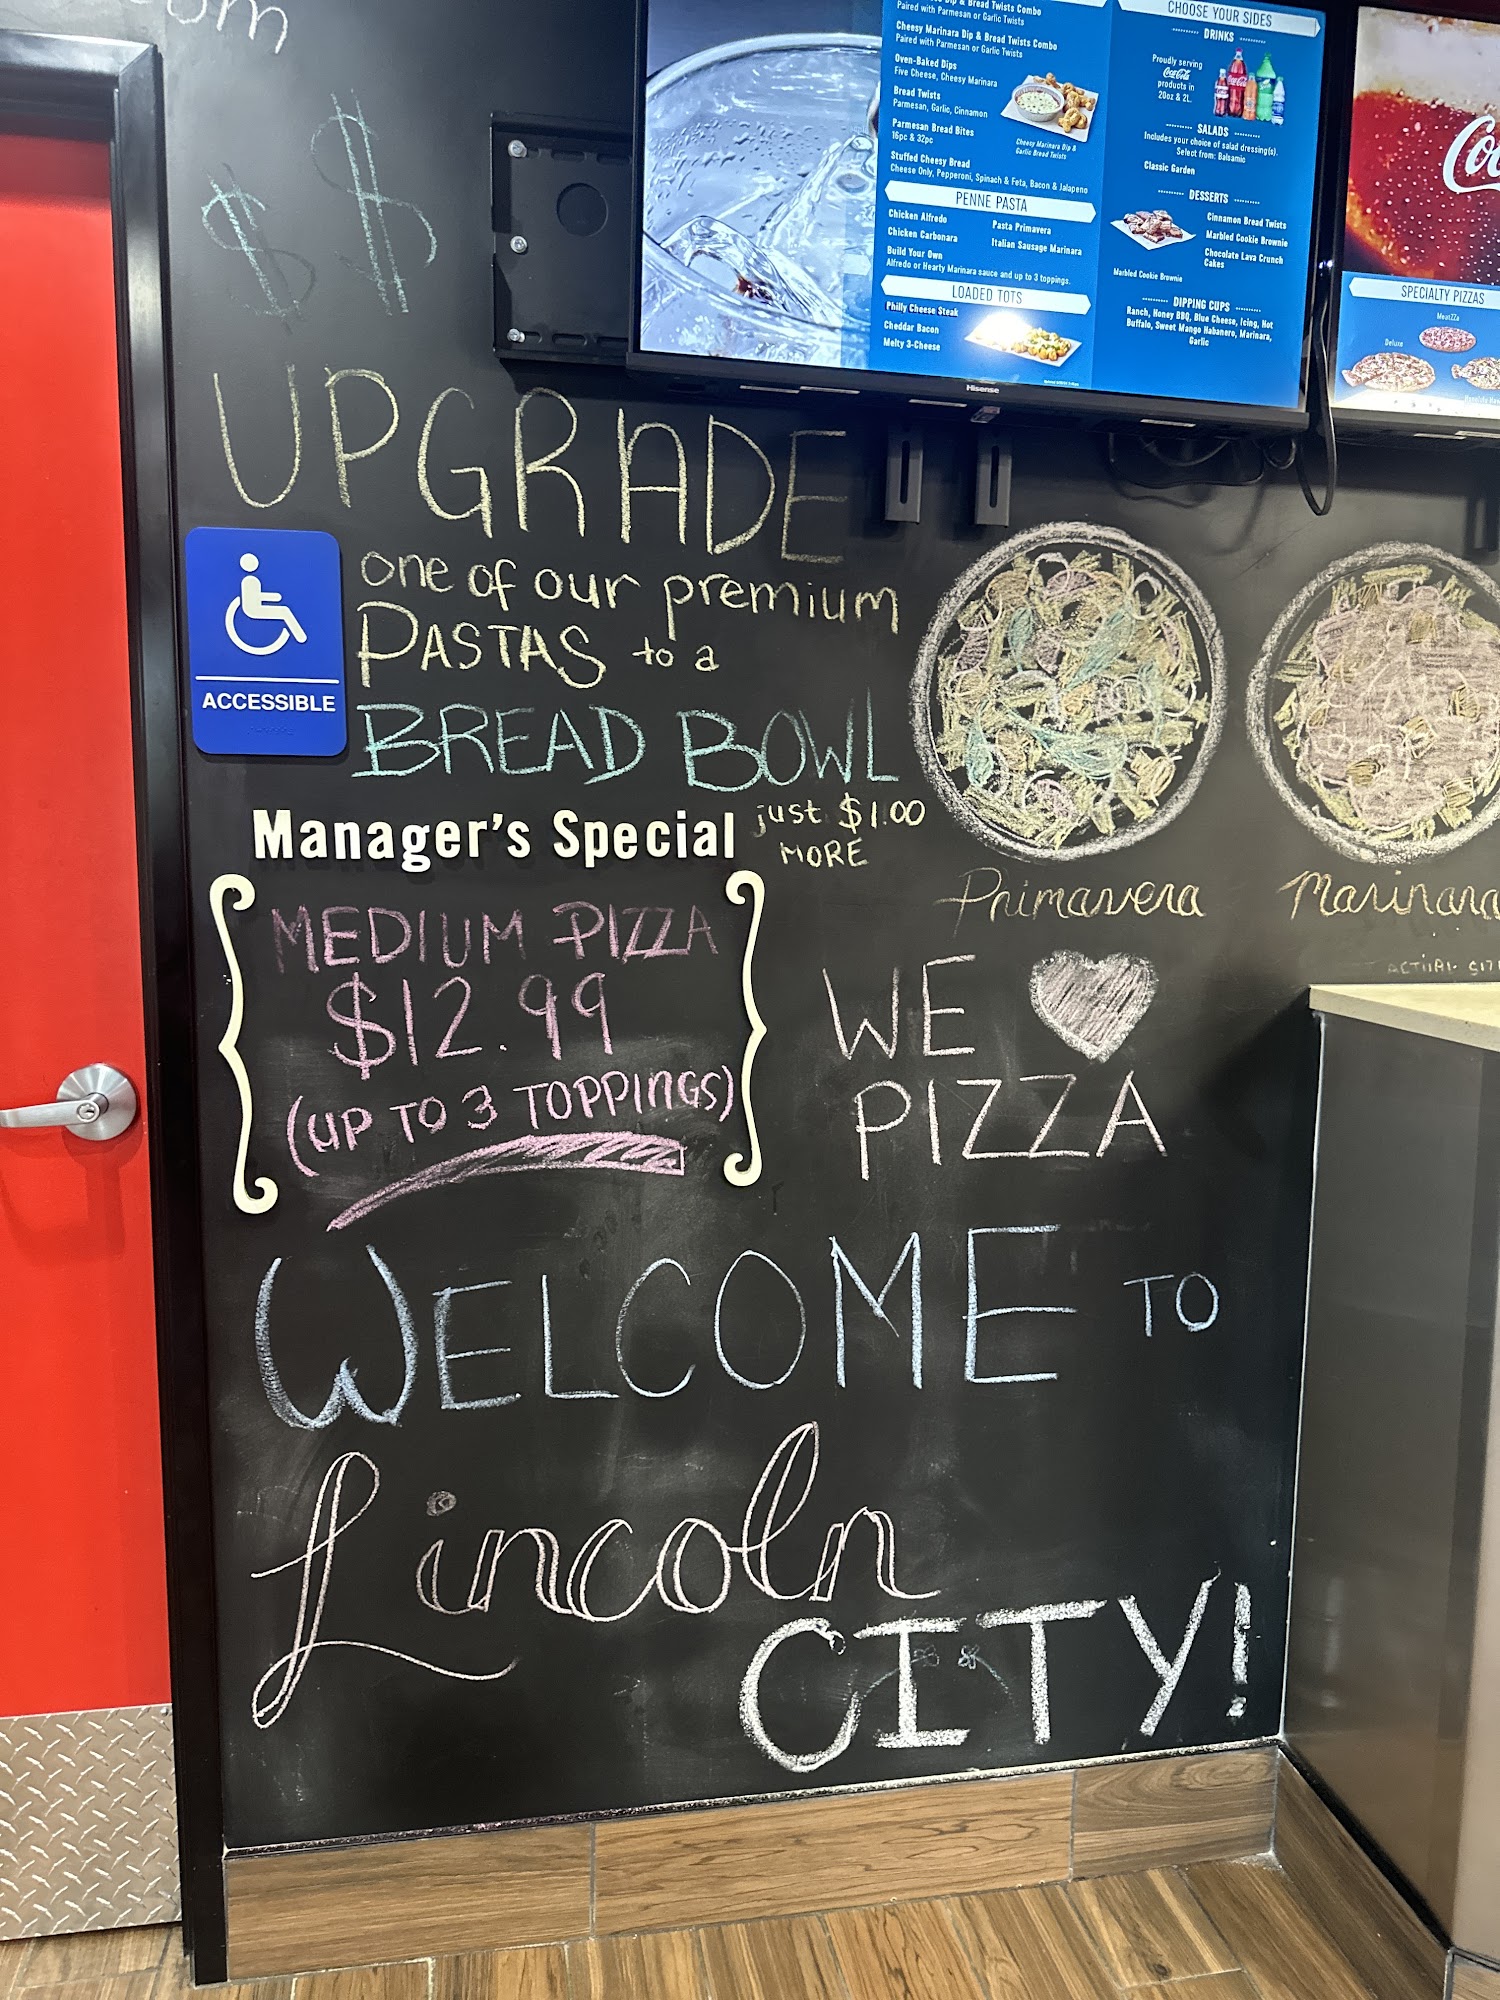 om
$ $
Paired with Parmesan or Garlic Twists
Cheesy Marinara Dip & Bread Twists Combo
Paired with Parmesan or Garlic Twists
Oven-Baked Dips
Five Cheese, Cheesy Marinara
Bread Twists
Parmesan, Garlic, Cinnamon
Parmesan Bread Bites
16pc & 32pc
Cheesy Marinara Dip &
Garlic Bread Twists
Stuffed Cheesy Bread
Cheese Only, Pepperoni, Spinach & Feta, Bacon & Jalapeno
PENNE PASTA
Chicken Alfredo
Chicken Carbonara
Pasta Primavera
Italian Sausage Marinara
Build Your Own
Alfredo or Hearty Marinara sauce and up to 3 toppings.
LOADED TOTS
Philly Cheese Steak
Cheddar Bacon
Melty 3-Cheese
CHOOSE YOUR SIDES
DRINKS
Proudly serving
Coca-Cola
products in
20oz & 2L.
SALADS
Includes your choice of salad dressing(s).
Select from: Balsamic
Classic Garden
DESSERTS
Cinnamon Bread Twists
Marbled Cookie Brownie
Chocolate Lava Crunch
Cakes
Marbled Cookie Brownie
DIPPING CUPS
Ranch, Honey BBQ, Blue Cheese, Icing, Hot
Buffalo, Sweet Mango Habanero, Marinara,
Garlic
Hisense
SPECIALTY PIZZAS
MeatZZa
Deluxe
UPGRADE
one of our premium
PASTAS to a
BREAD BOWL
just $1.00
MORE
ACCESSIBLE
Primavera
Marinara
ACTUAL
Manager's Special
MEDIUM PIZZA
$12.99
(UP TO 3 TOPPINGS)
WE
PIZZA
WELCOME TO
Lincoln
CITY!